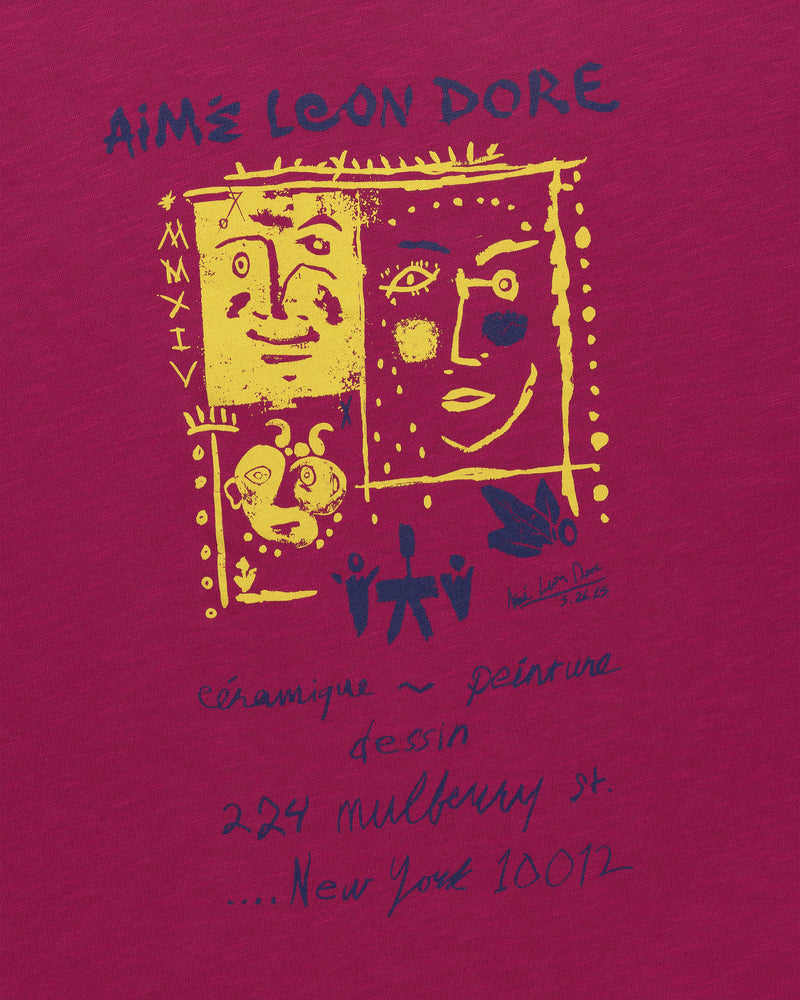 AiMÉ LEON DORE
MMXIV
Aimé Leon Dore
5.26.65
céramique ~ peinture
dessin
224 mulberry st.
....New York 10012